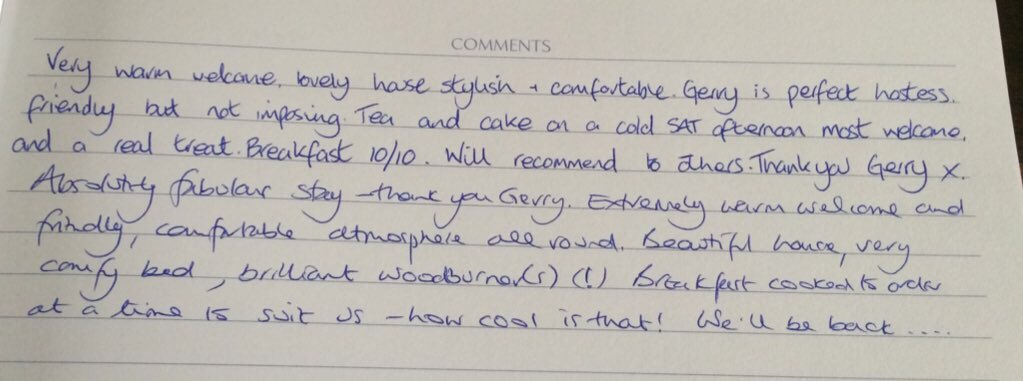 COMMENTS
Very warm welcome, lovely house stylish + comfortable. Gerry is perfect hostess.
friendly but not imposing. Tea and cake on a cold SAT afternoon most welcome.
and a real treat. Breakfast 10/10. Will recommend to others. Thank you Gerry x.
Absolutely fabulous stay - thank you Gerry. Extremely warm welcome and
friendly, comfortable atmosphere all round. Beautiful house, very
comfy bed, brilliant woodburner(s) (!) Breakfast cooked to order
at a time to suit us - how cool is that! We'll be back .....